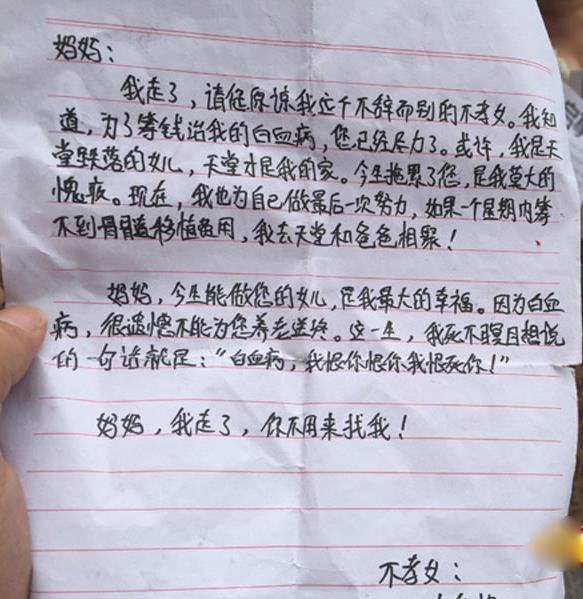 妈妈:
我走了,请您原谅我这个不辞而别的不孝女。我知
道,为了筹钱治我的白血病,您已经尽力了。或许,我是天
堂跌落的女儿,天堂才是我的家。今生拖累了您,是我莫大的
愧疚。现在,我也为自己做最后一次努力,如果一个星期内筹
不到骨髓移植费用,我去天堂和爸爸相聚!
妈妈,今生能做您的女儿,是我最大的幸福。因为白血
病,很遗憾不能为您养老送终。这一生,我死不瞑目想说
的一句话就是:“白血病,我恨你恨你我恨死你!”
妈妈,我走了,你不用来找我!
不孝女: